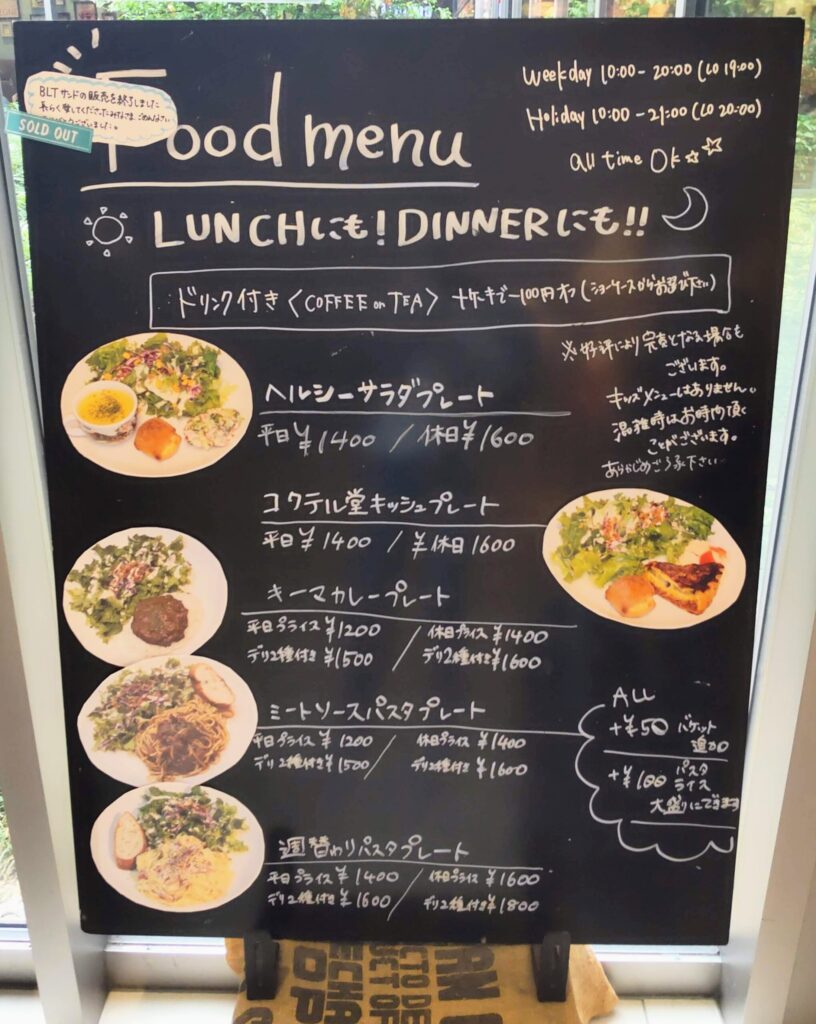 BLTサンドの販売を終了しました
長らく愛してくださったみなさま、ごめんなさい
ございました。
SOLD OUT
Food menu
Weekday 10:00-20:00 (LO 19:00)
Holiday 10:00-21:00 (LO 20:00)
all time OK☆☆
LUNCHにも! DINNERにも!!
ドリンク付き〈COFFEE or TEA〉 +ケーキで-100円オフ (ショーケースからお選び下さい)
※好評により完売となる場合も
ございます。
キッズメニューはありません。
混雑時はお時間頂く
ことがございます。
あらかじめご了承下さい
ヘルシーサラダプレート
平日¥1400 / 休日¥1600
コクテル堂キッシュプレート
平日¥1400 / ¥休日1600
キーマカレープレート
平日プライス ¥1200 / 休日プライス ¥1400
デリ2種付き ¥1500 / デリ2種付き ¥1600
ミートソースパスタプレート
平日プライス ¥1200 / 休日プライス ¥1400
デリ2種付き ¥1500 / デリ2種付き ¥1600
ALL
+¥50 バゲット
追加
+¥100 パスタ
ライス
大盛りにできます
週替わりパスタプレート
平日プライス ¥1400 / 休日プライス ¥1600
デリ2種付き ¥1600 / デリ2種付き ¥1800